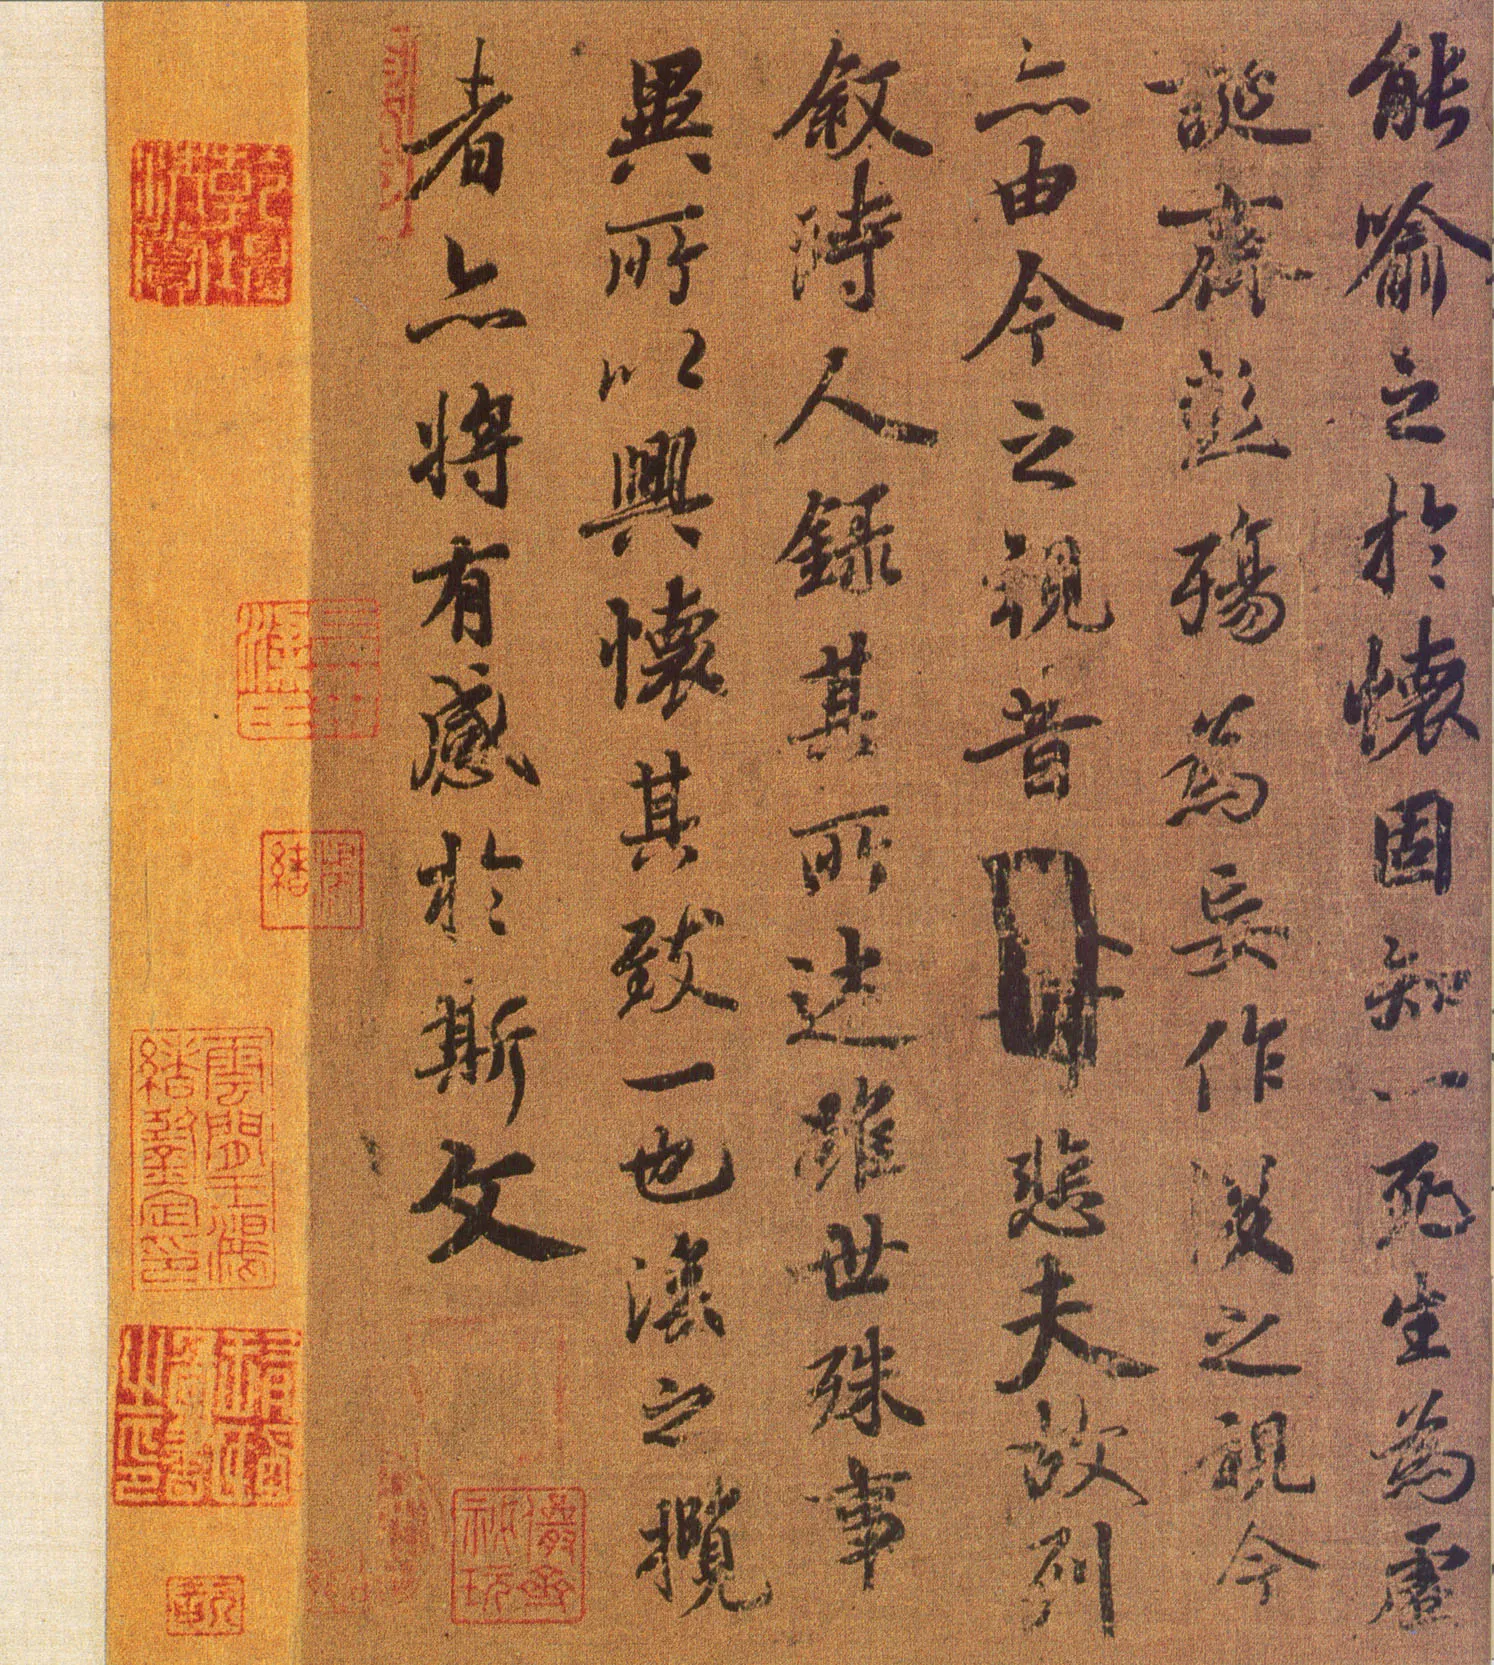 能喻之於懷固知一死生為虛
誕齊彭殤為妄作後之視今
亦由今之視昔悲夫故列
敘時人錄其所述雖世殊事
異所以興懷其致一也後之攬
者亦將有感於斯文
儼齋秘玩
雲間王鴻緒鑒定印